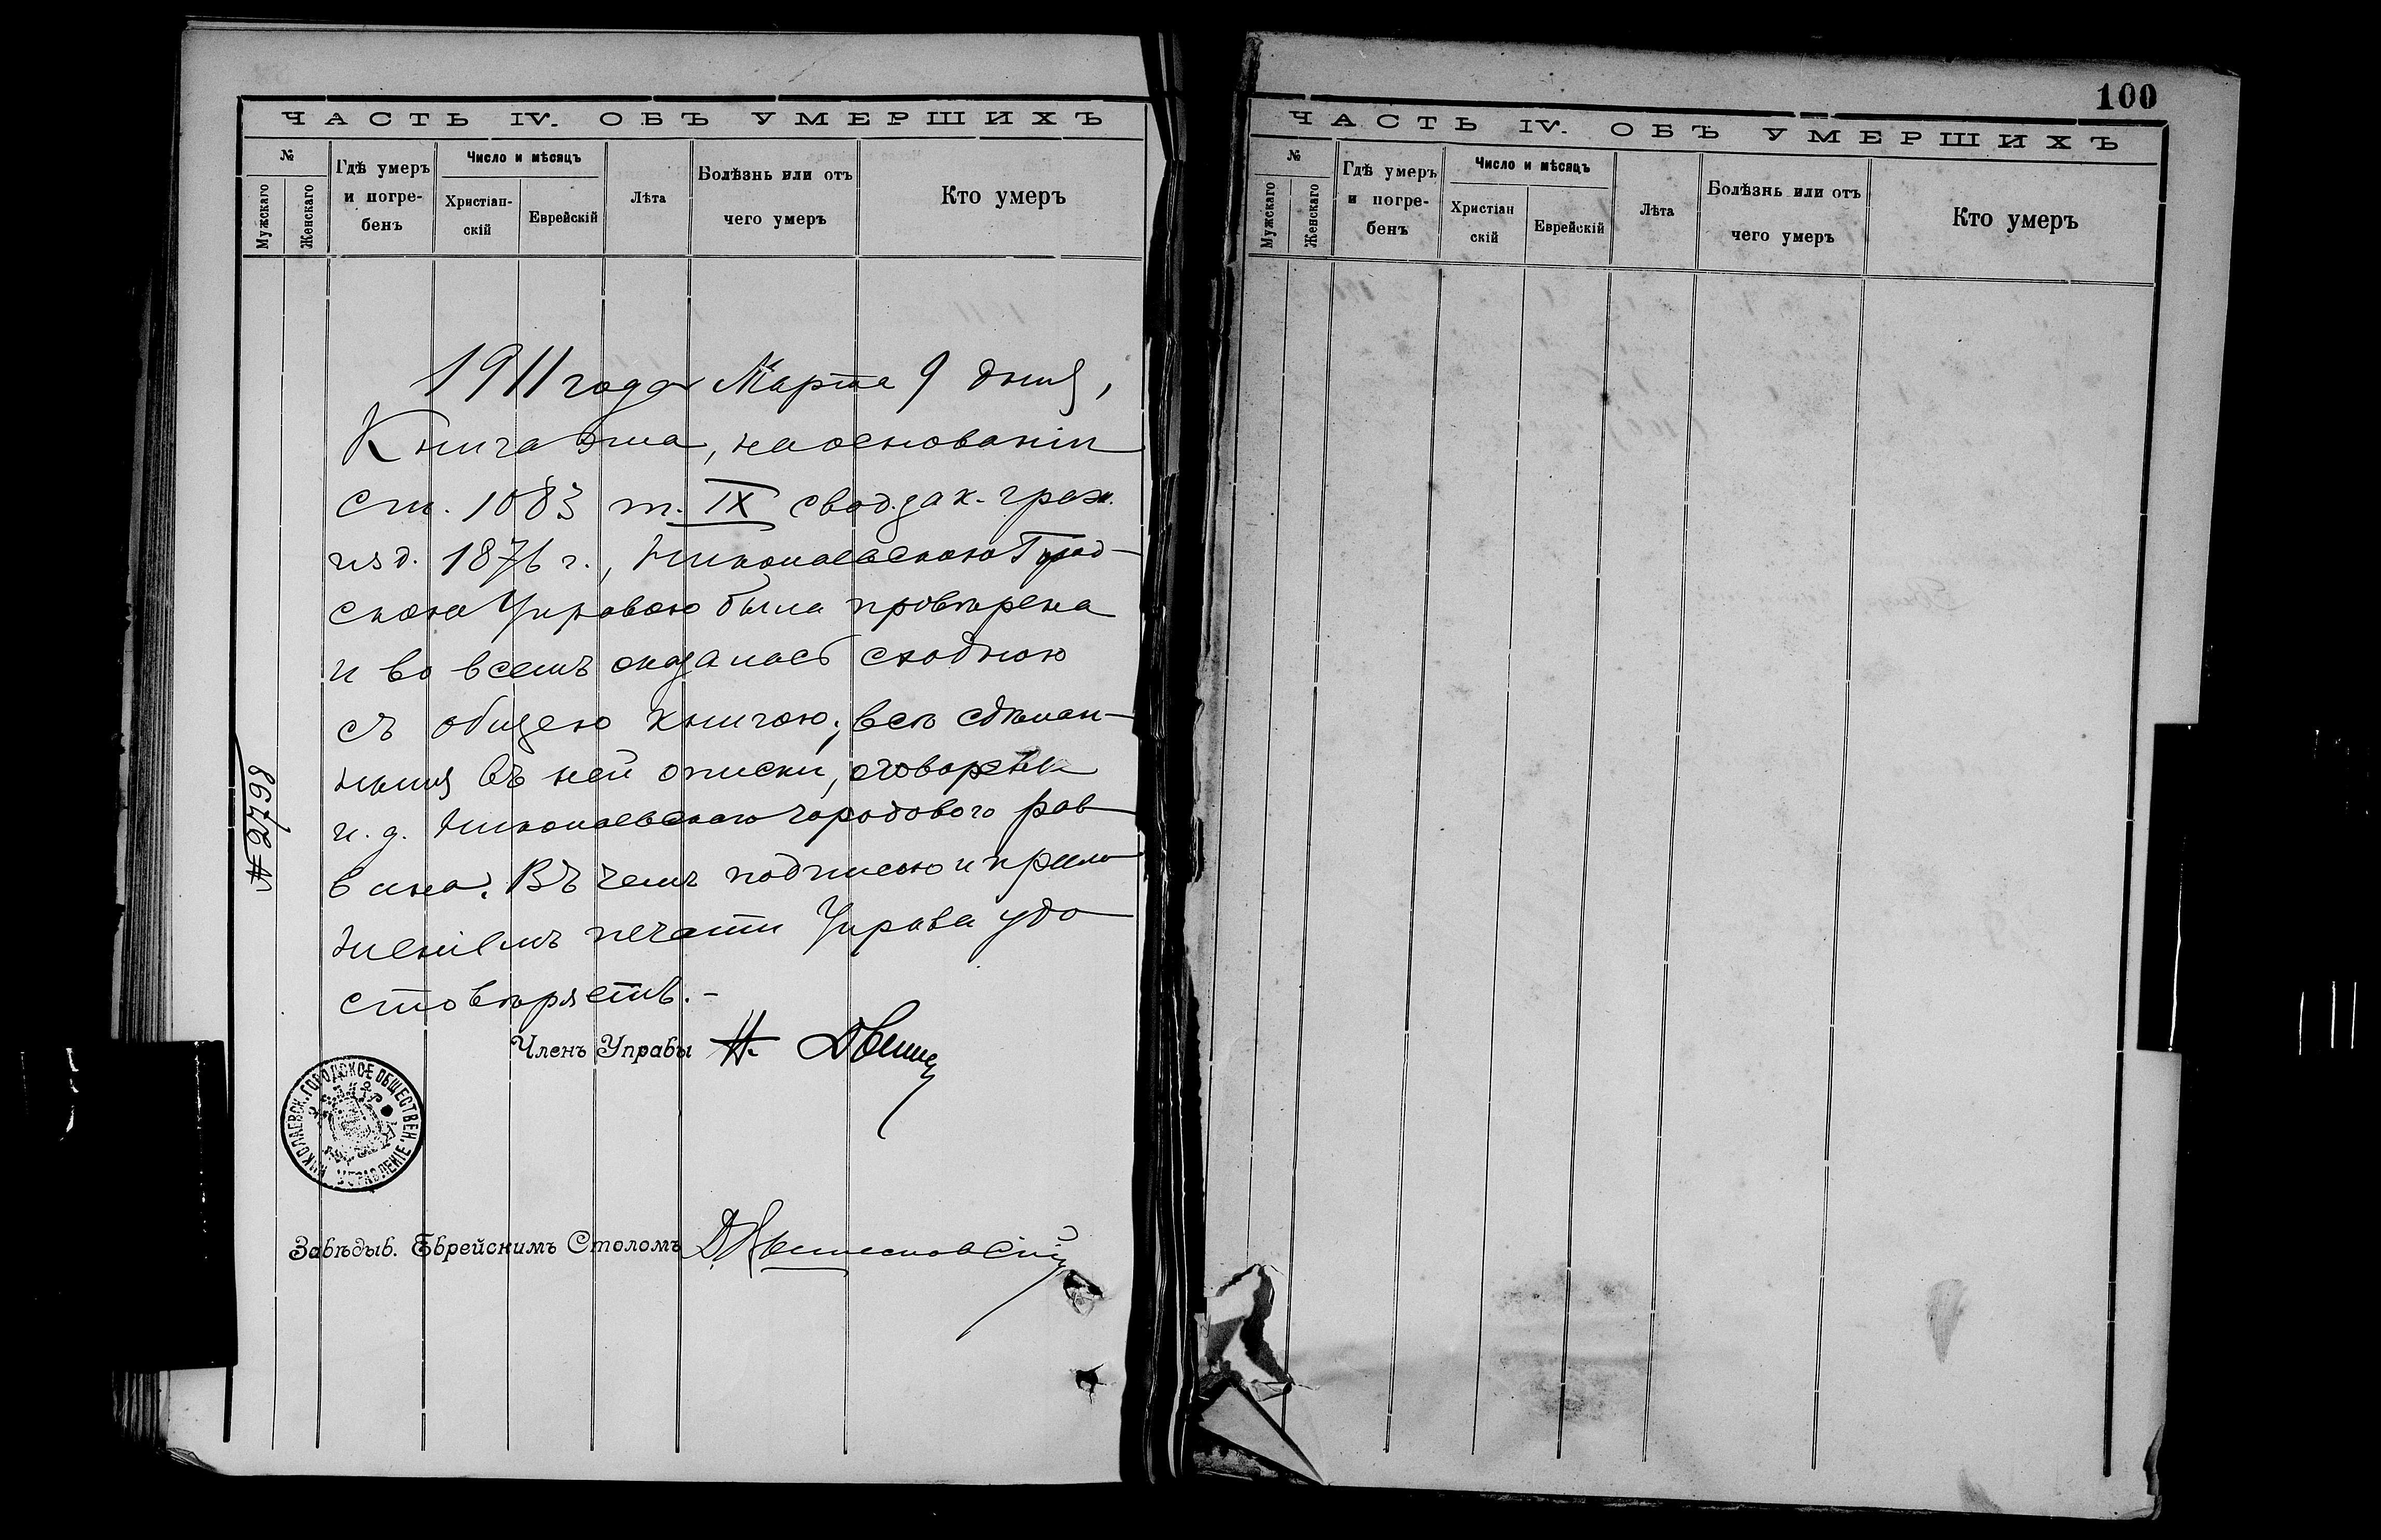 ЧАСТЬ IV. ОБЪ УМЕРШИХЪ
№
Мужскаго
Женскаго
Гдѣ умеръ
и погре-
бенъ
Число и мѣсяцъ
Христіан-
скій
Еврейскій
Лѣта
Болѣзнь или отъ
чего умеръ
Кто умеръ
1911 года Марта 9 дня,
Книга эта, на основаніи
ст. 1083 т. IX свод. зак. граж.
изд. 1876 г., Николаевскою Город-
скою Управою была провѣрена
и во всемъ оказалась сходною
съ общею книгою; всѣ сдѣлан-
ныя въ ней описки, оговорены
и. д. Николаевскаго городового рав-
вина. Въ чемъ подписью и прило-
женіемъ печати Управа удо-
стовѣряетъ.-
Членъ Управы Н.
НИКОЛАЕВСК. ГОРОДСКОЕ ОБЩЕСТВЕН. УПРАВЛЕНІЕ
Завѣдыв. Еврейскимъ Столомъ
№ 2798
100
ЧАСТЬ IV. ОБЪ УМЕРШИХЪ
№
Мужскаго
Женскаго
Гдѣ умеръ
и погре-
бенъ
Число и мѣсяцъ
Христіан
скій
Еврейскій
Лѣта
Болѣзнь или отъ
чего умеръ
Кто умеръ